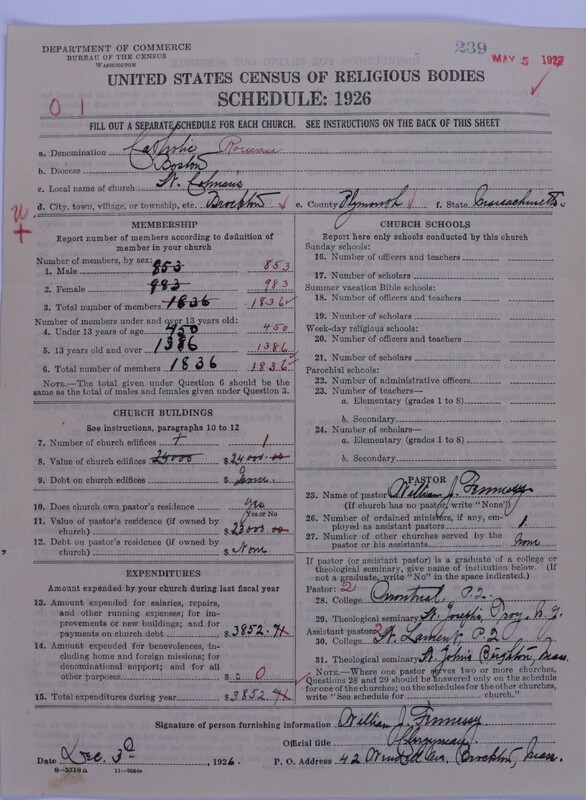 DEPARTMENT OF COMMERCE
BUREAU OF THE CENSUS
WASHINGTON
239
MAY 5 1927
UNITED STATES CENSUS OF RELIGIOUS BODIES
SCHEDULE: 1926
0 1
FILL OUT A SEPARATE SCHEDULE FOR EACH CHURCH. SEE INSTRUCTIONS ON THE BACK OF THIS SHEET
a. Denomination Catholic Roman
b. Diocese Boston
c. Local name of church St. Colmans
d. City, town, village, or township, etc. Brockton e. County Plymouth f. State Massachusetts
MEMBERSHIP
Report number of members according to definition of member in your church
Number of members, by sex:
1. Male 853 853
2. Female 983 983
3. Total number of members 1836 1836
Number of members under and over 13 years old:
4. Under 13 years of age 450 450
5. 13 years old and over 1386 1386
6. Total number of members 1836 1836
NOTE.—The total given under Question 6 should be
same as the total of males and females given under Question 3.
CHURCH BUILDINGS
See instructions, paragraphs 10 to 12
7. Number of church edifices 1
8. Value of church edifices $
9. Debt on church edifices $
10. Does church own pastor's residence Yes
Yes or No
11. Value of pastor's residence (if owned by
church) $
12. Debt on pastor's residence (if owned by
church) $ None
EXPENDITURES
Amount expended by your church during last fiscal year
13. Amount expended for salaries, repairs,
and other running expenses; for im-
provements or new buildings; and for
payments on church debt $3852.
14. Amount expended for benevolences,
including home and foreign missions; for
denominational support; and for all
other purposes 0
15. Total expenditures during year $3852.
CHURCH SCHOOLS
Report here only schools conducted by this church
Sunday schools:
16. Number of officers and teachers
17. Number of scholars
Summer vacation Bible schools:
18. Number of officers and teachers
19. Number of scholars
Week-day religious schools:
20. Number of officers and teachers
21. Number of scholars
Parochial schools:
22. Number of administrative officers
23. Number of teachers—
a. Elementary (grades 1 to 8)
b. Secondary
24. Number of scholars—
a. Elementary (grades 1 to 8)
b. Secondary
PASTOR
25. Name of pastor William J. Fennessy
(If church has no pastor, write "None")
26. Number of ordained ministers, if any, em-
ployed as assistant pastors 1
27. Number of other churches served by the
pastor or his assistants None
If pastor (or assistant pastor) is a graduate of a college or
theological seminary, give name of institution below. (If
not a graduate, write "No" in the space indicated.)
Pastor: 2
28. College Montreal, P.Q.
29. Theological seminary St. Josephs, Troy, N.Y.
Assistant pastor: 2
30. College St. Laurent P.Q
31. Theological seminary St. Johns Brighton, Mass.
NOTE.—Where one pastor serves two or more churches,
Questions 28 and 29 should be answered only on the schedule
for one of the churches; on the schedules for the other churches,
write "See schedule for church."
Signature of person furnishing information William J. Fennessy
Official title Clergyman
Date Dec. 3d, 1926. P. O. Address 42 Wendell Ave. Brockton, Mass.
8-3318a 11-9086